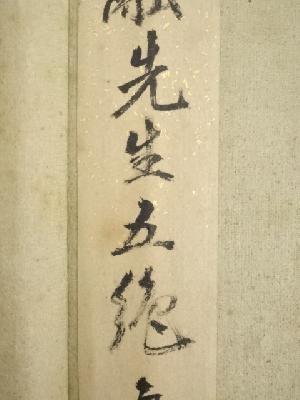 先生五绝